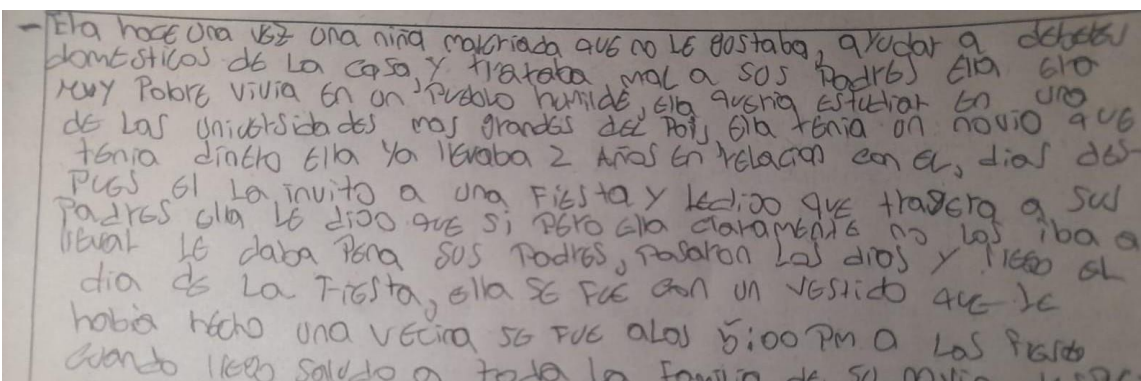 - Era hace una vez una niña malcriada que no le gustaba, ayudar a deberes
domesticos de La casa, y trataba mal a sus Padres Ella era
Muy Pobre vivia en un Pueblo humilde, ella queria Estudiar en una
de Las universidades mas grandes del Pais, Ella tenia un novio que
tenia dinero Ella Ya llevaba 2 Años En relacion con EL, dias des-
Pues el La invito a una Fiesta y Ledijo que tragera a sus
Padres ella Le dijo que si pero ella claramente no los iba a
llevar Le daba Pena sus Padres, Pasaron Los dias y llego el
dia de La Fiesta, ella se fue con un vestido que le
habia hecho una vecina se fue alas 5:00 Pm a Las
cuando llego saludo a toda la Familia de su